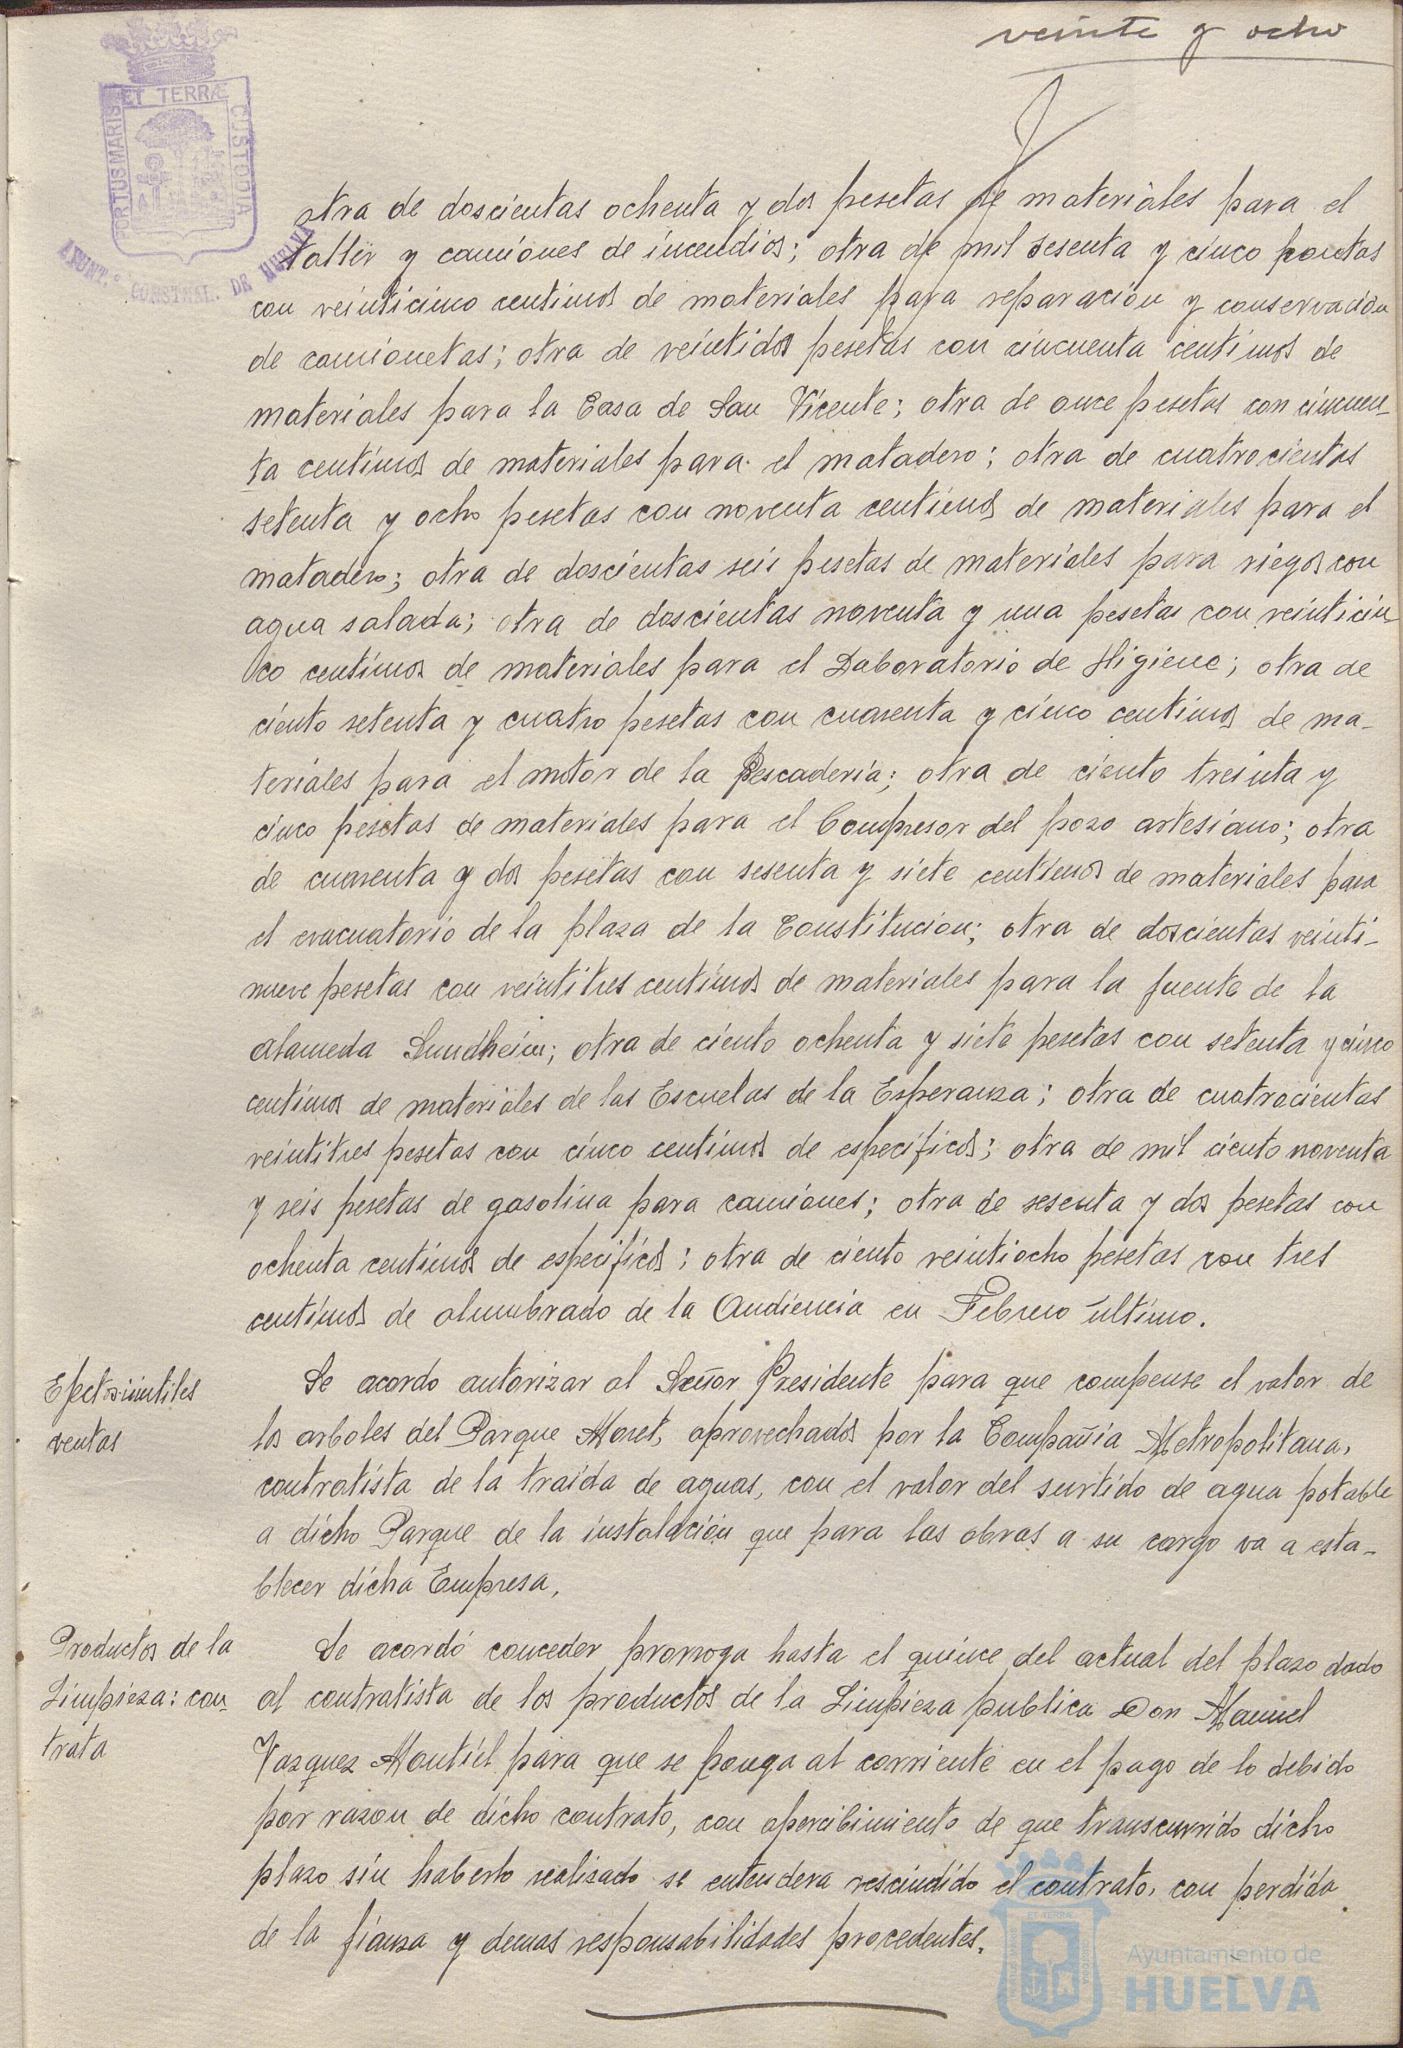 veinte y ocho
PORTUS MARIS ET TERRÆ CUSTODIA
AYUNT.º CONSTNAL. DE HUELVA
otra de doscientas ochenta y dos pesetas de materiales para el
taller y camiones de incendios; otra de mil sesenta y cinco pesetas
con veinticinco centimos de materiales para reparación y conservación
de camionetas; otra de veintidos pesetas con cincuenta centimos de
materiales para la Casa de San Vicente; otra de once pesetas con cincuen-
ta centimos de materiales para el matadero; otra de cuatrocientas
setenta y ocho pesetas con noventa centimos de materiales para el
matadero; otra de doscientas seis pesetas de materiales para riegos con
agua salada; otra de doscientas noventa y una pesetas con veinticin
co centimos de materiales para el Laboratorio de Higiene; otra de
ciento setenta y cuatro pesetas con cuarenta y cinco centimos de ma-
teriales para el motor de la Pescadería; otra de ciento treinta y
cinco pesetas de materiales para el Compresor del pozo artesiano; otra
de cuarenta y dos pesetas con sesenta y siete centimos de materiales para
el evacuatorio de la plaza de la Constitucion; otra de doscientas veinti-
nueve pesetas con veintitres centimos de materiales para la fuente de la
alameda Sundheim; otra de ciento ochenta y siete pesetas con setenta y cinco
centimos de materiales de las Escuelas de la Esperanza; otra de cuatrocientas
veintitres pesetas con cinco centimos de especificos; otra de mil ciento noventa
y seis pesetas de gasolina para camiones; otra de sesenta y dos pesetas con
ochenta centimos de especificos; otra de ciento veintiocho pesetas con tres
centimos de alumbrado de la Audiencia en Febrero último.
Efectos inutiles
ventas
Se acordo autorizar al Señor Presidente para que compense el valor de
los arboles del Parque Moret, aprovechados por la Compañia Metropolitana,
contratista de la traida de aguas, con el valor del surtido de agua potable
a dicho Parque de la instalación que para las obras a su cargo va a esta-
blecer dicha Empresa.
Productos de la
Limpieza: con-
trata
Se acordó conceder prorroga hasta el quince del actual del plazo dado
al contratista de los productos de la Limpieza publica Don Manuel
Vazquez Montiel para que se ponga al corriente en el pago de lo debido
por razon de dicho contrato, con apercibimiento de que transcurrido dicho
plazo sin haberlo realizado se entendera rescindido el contrato, con perdida
de la fianza y demas responsabilidades procedentes.
Ayuntamiento de
HUELVA